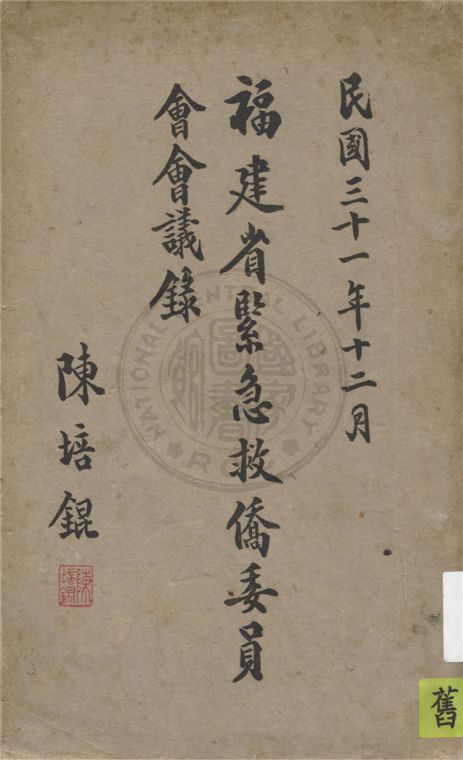 民國三十一年十二月
福建省緊急救僑委員
會會議錄
陳培錕
陳培錕
NATIONAL CENTRAL LIBRARY
R.O.C.
舊